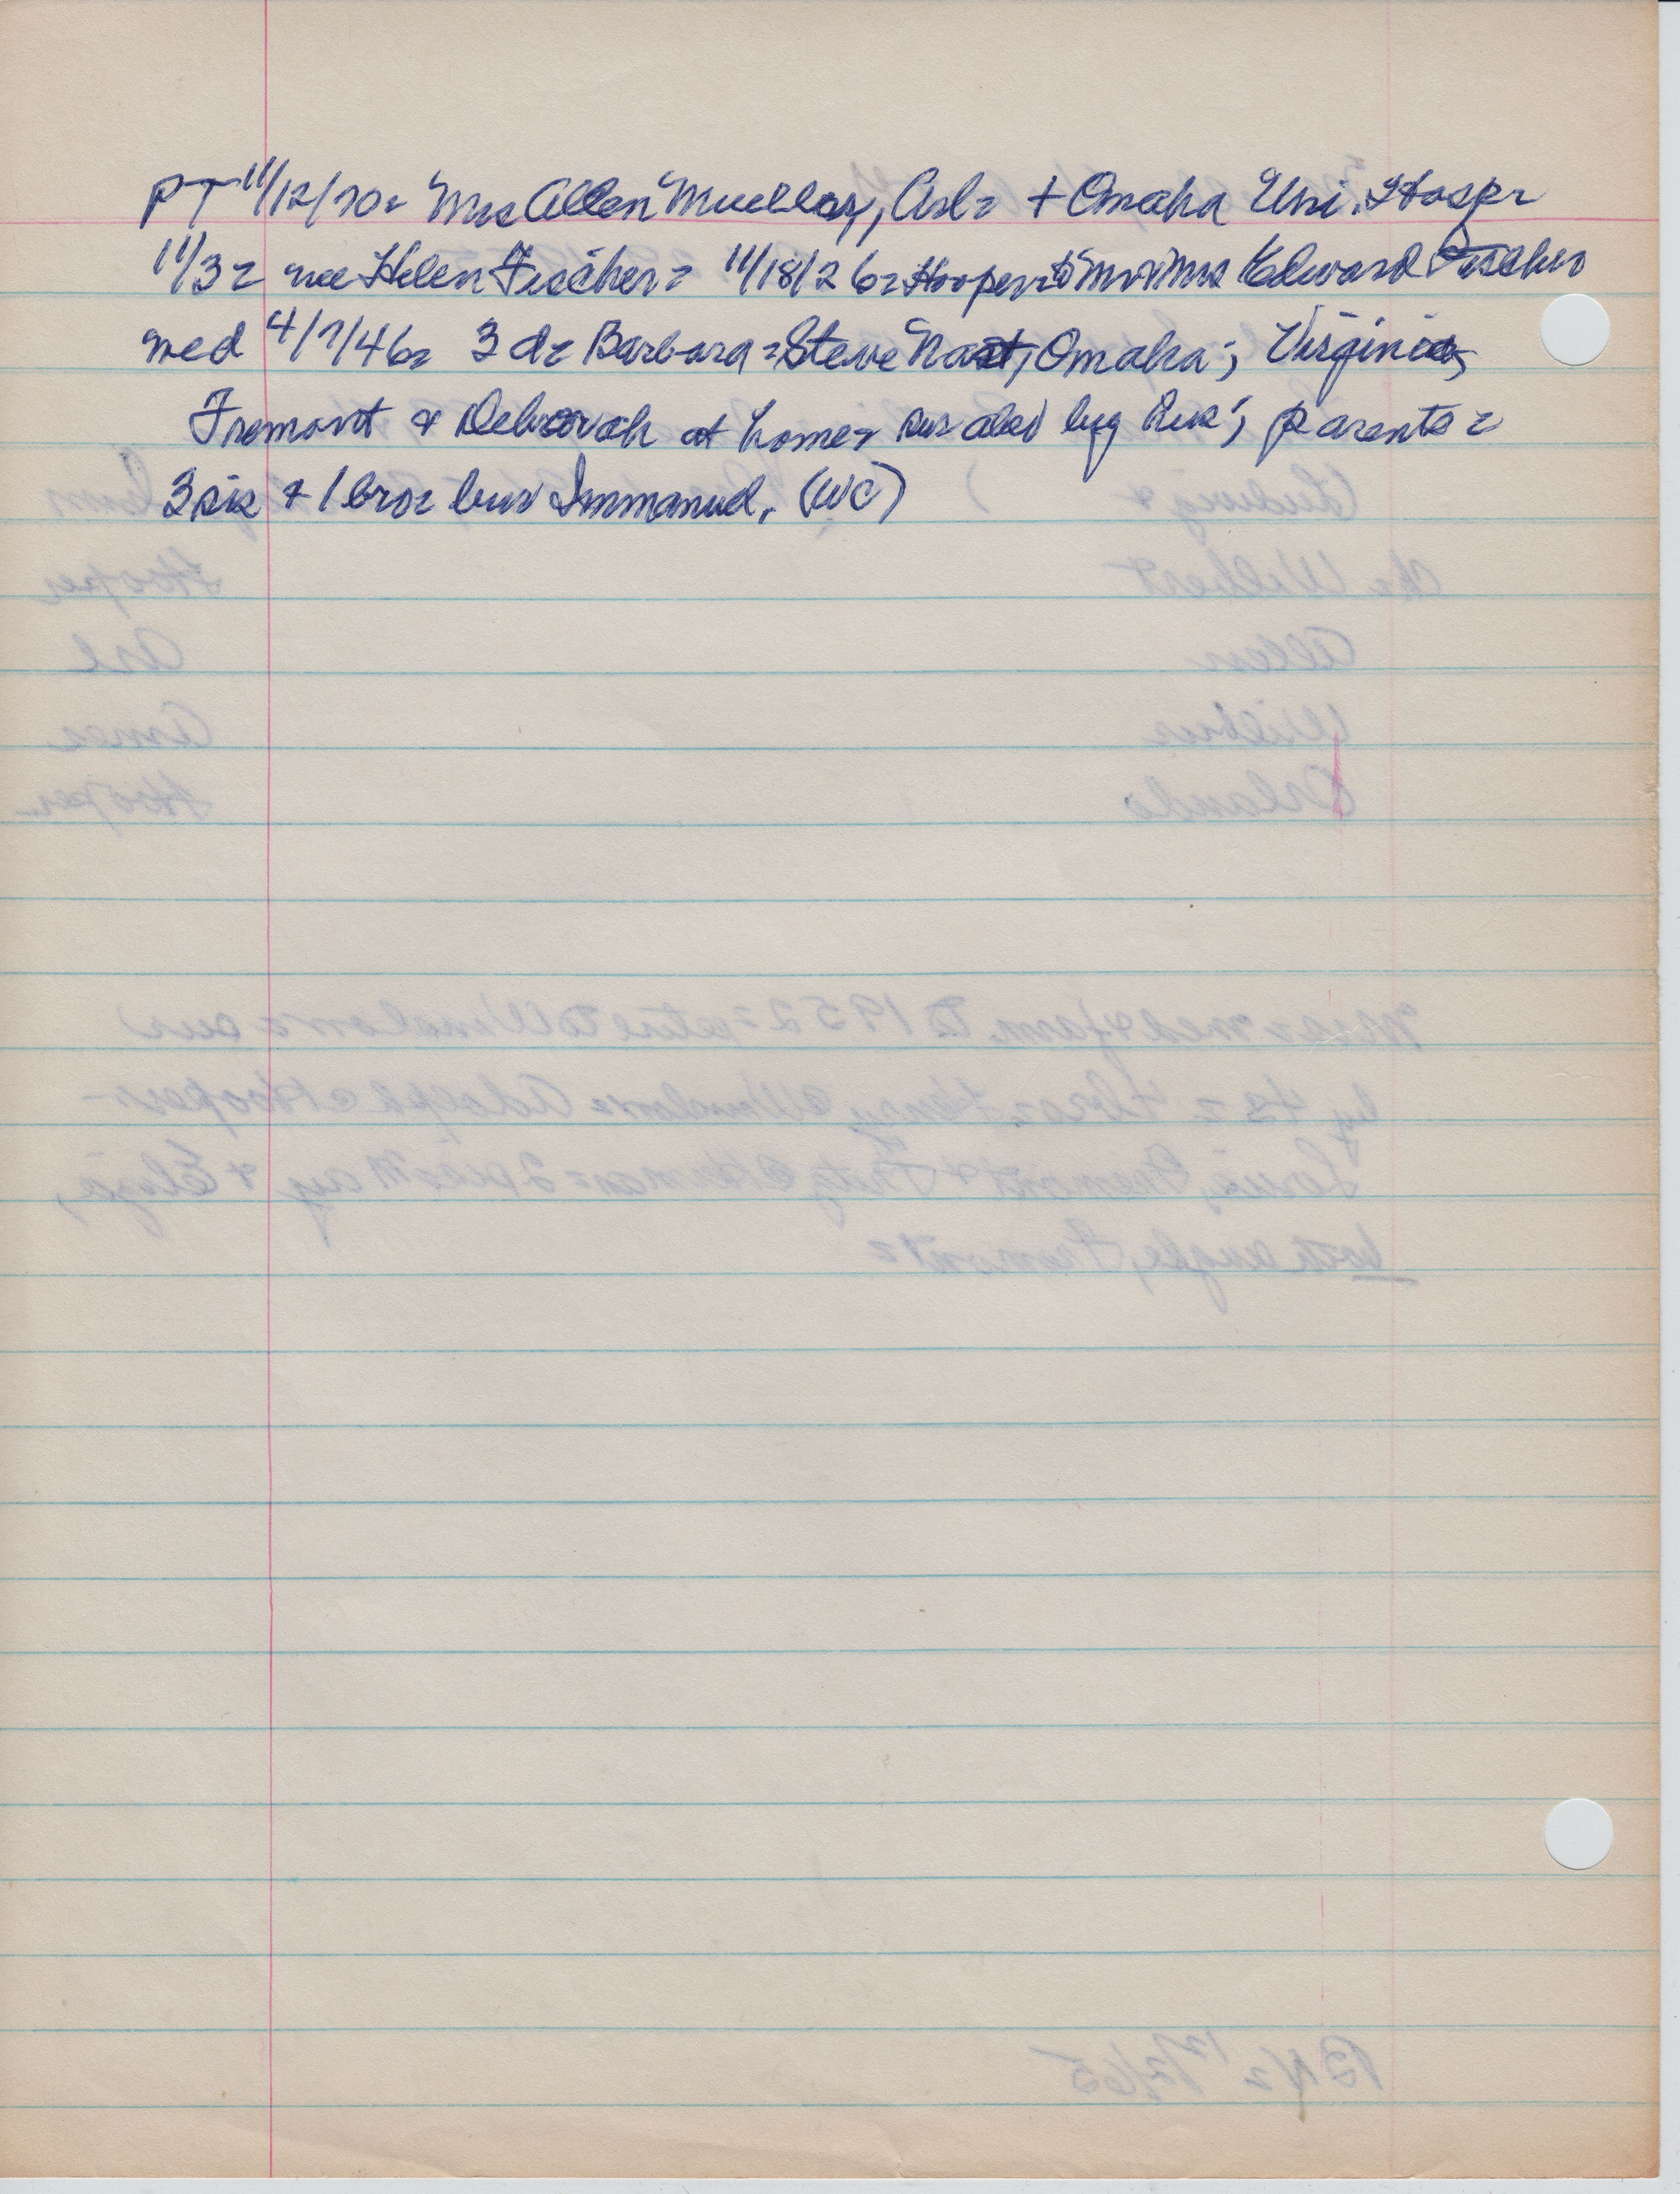 PT 11/12/70= Mrs Allen Mueller, Arl= + Omaha Uni. Hosp=
11/3= nee Helen Fischer= 11/18/26= Hooper= to Mr & Mrs Edward Fischer
med 4/7/46= 3 d= Barbara= Steve Nast, Omaha; Virginia,
Fremont & Deborah at home= sur also by hus; parents=
3 sis & 1 bro= bur Immanuel. (WC)